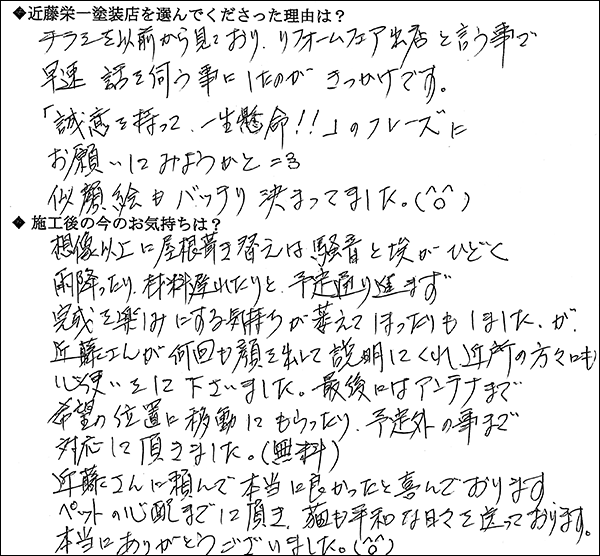 ◆近藤栄一塗装店を選んでくださった理由は?
チラシを以前から見ており、リフォームフェア出店と言う事で
早速 話を伺う事にしたのが きっかけです。
「誠意を持って、一生懸命!!」のフレーズに
お願いしてみようかと=3
似顔絵も バッチリ 決まってました。(^o^)
◆ 施工後の今のお気持ちは?
想像以上に屋根葺き替えは 騒音と埃がひどく
雨降ったり、材料遅れたりと、予定通り進まず
完成を楽しみにする気持ちが萎えてしまったりもしました、が、
近藤さんが何回も顔を出して説明してくれ、近所の方々にも
心使いをして下さいました。最後にはアンテナまで
希望の位置に移動してもらったり、予定外の事まで
対応して頂きました。(無料)
近藤さんに頼んで本当に良かったと喜んでおります
ペットの心配までして頂き、猫も平和な日々を送っております。
本当にありがとうございました。(^o^)